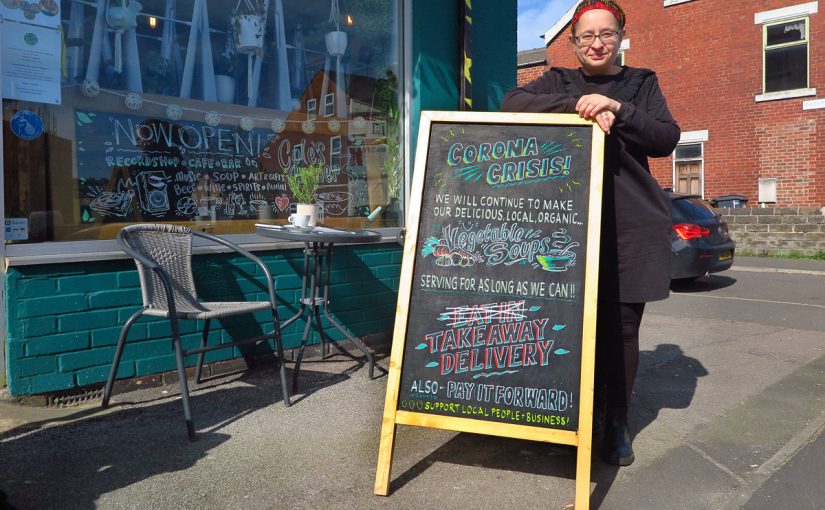 NOW OPEN!
RECORDSHOP • CAFE • BAR
MUSIC • SOUP • ART • GIFTS
BEER • WINE • SPIRITS • PANINI
CORONA
CRISIS!
WE WILL CONTINUE TO MAKE
OUR DELICIOUS, LOCAL, ORGANIC...
Vegetable
Soups
SERVING FOR AS LONG AS WE CAN!!
EAT IN
TAKEAWAY
DELIVERY
ALSO~ PAY IT FORWARD!
SUPPORT LOCAL PEOPLE + BUSINESS!